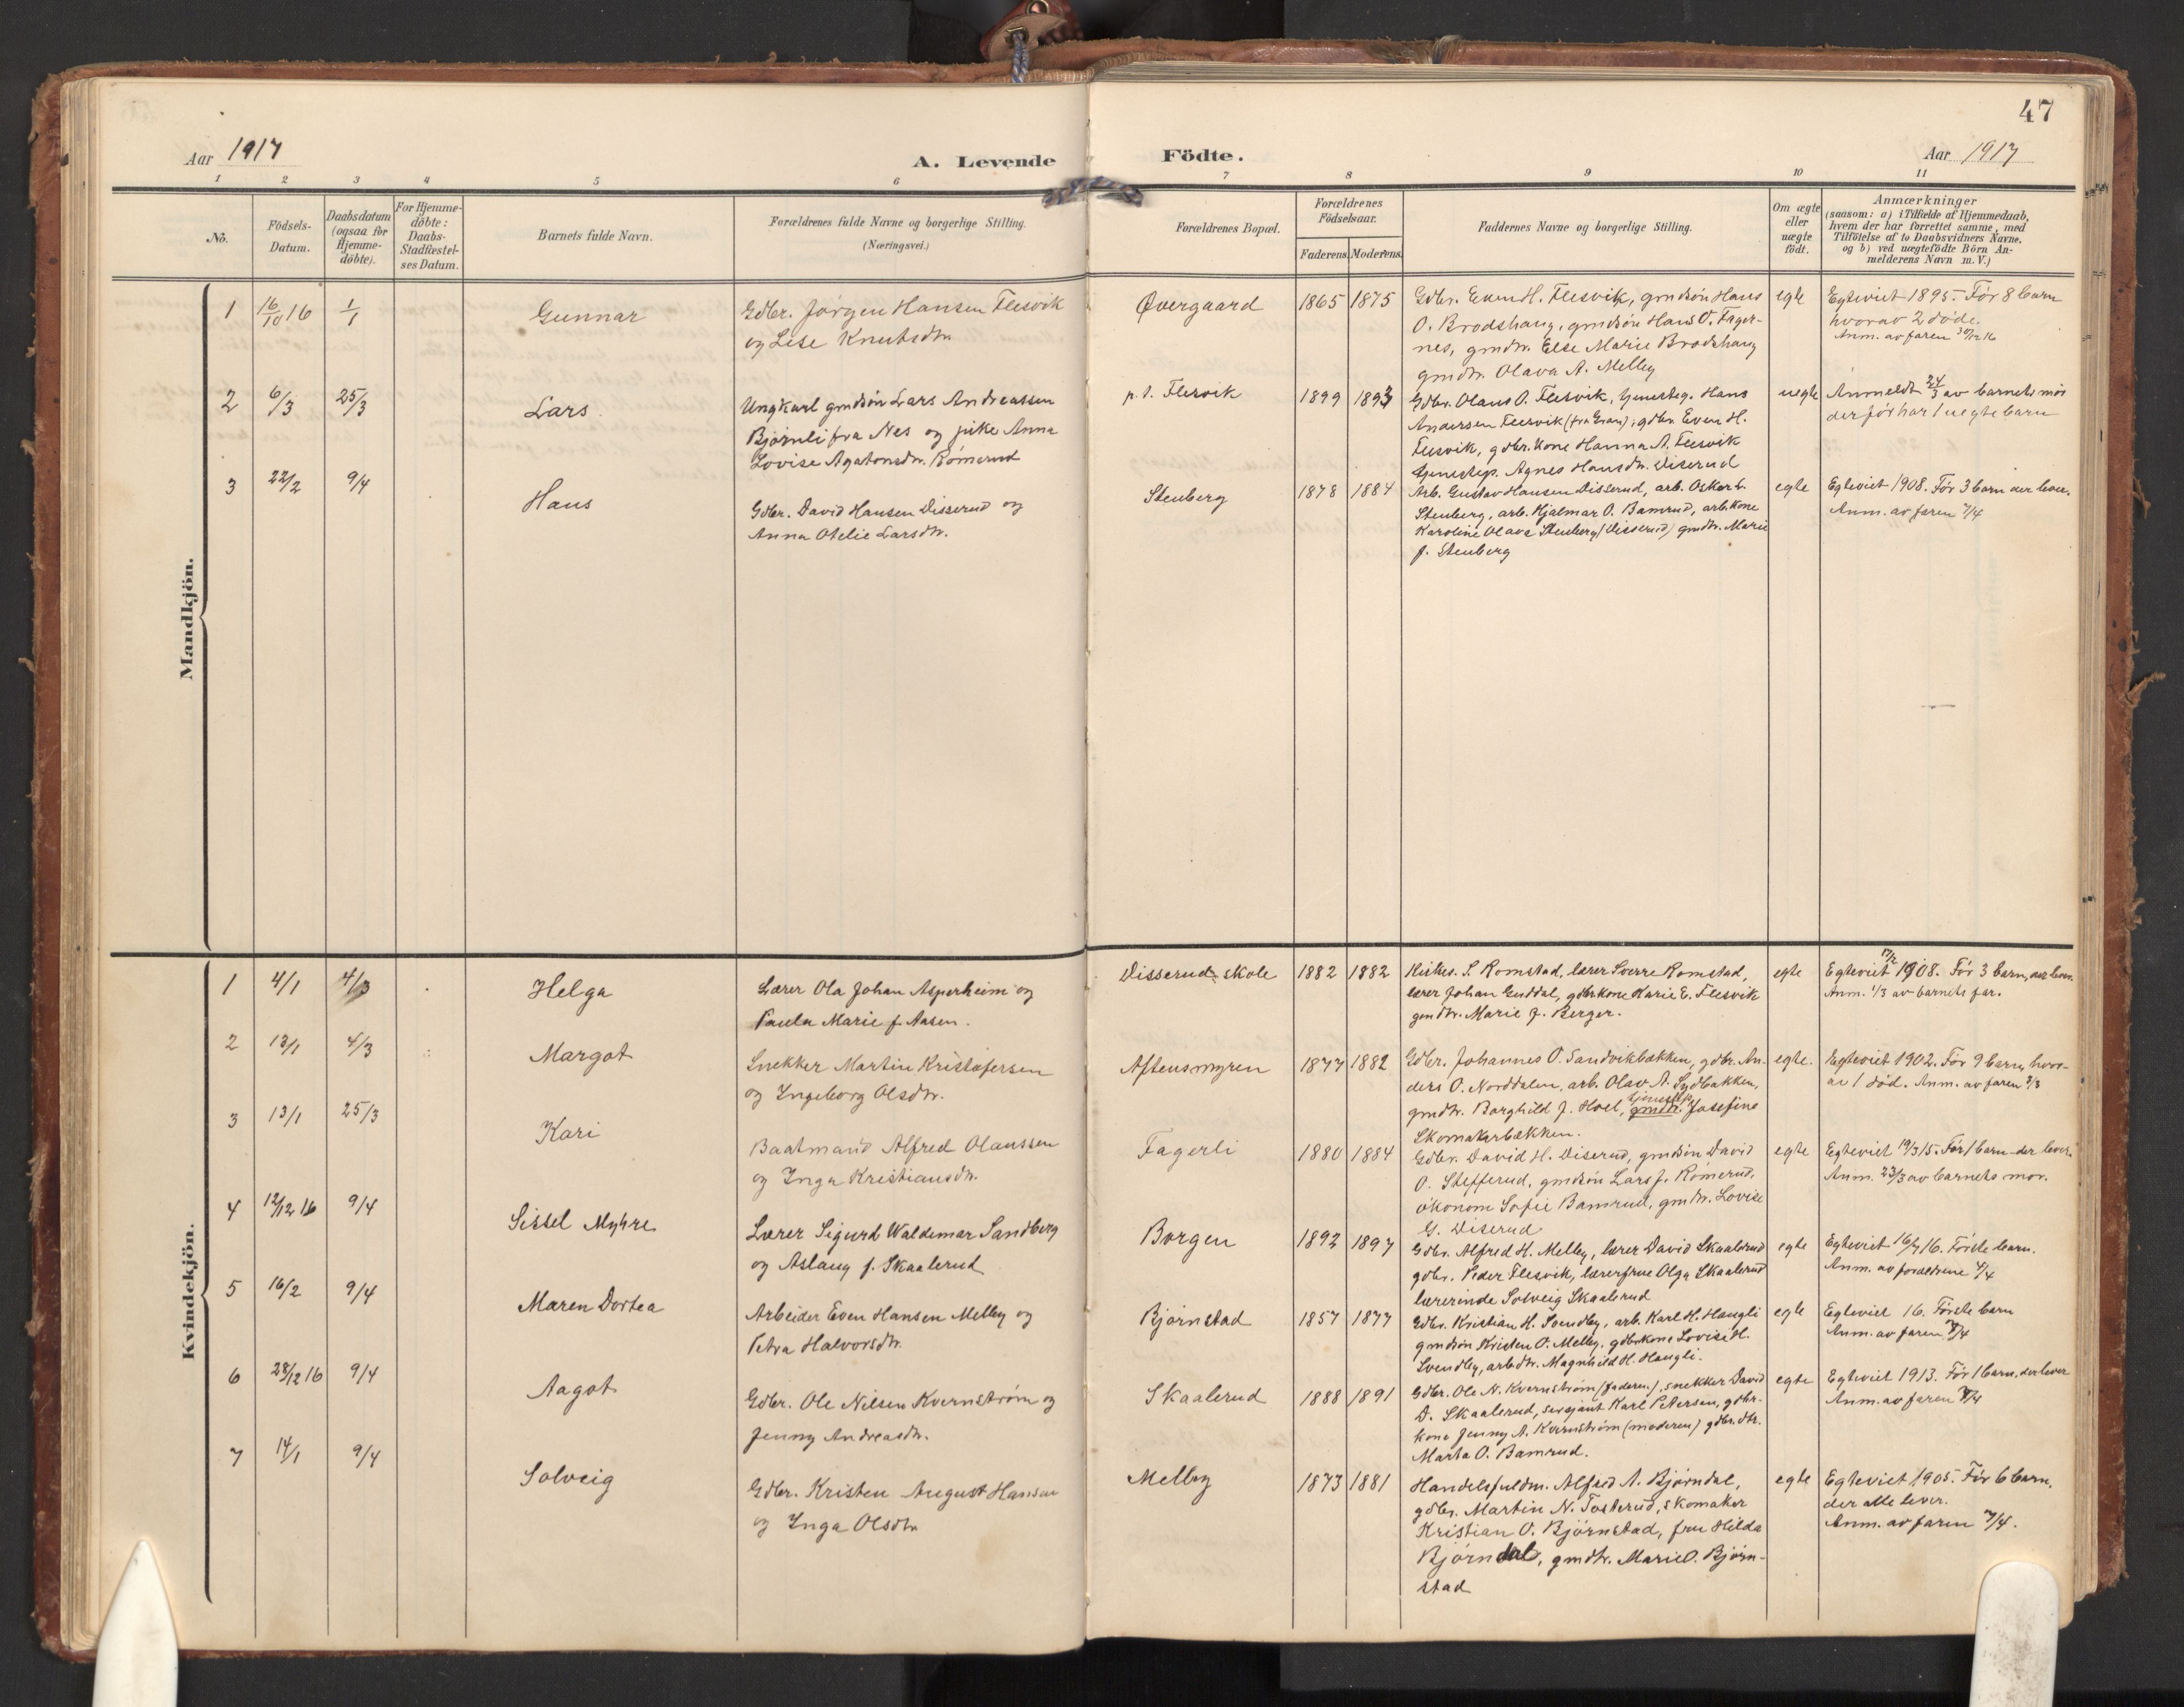 47
Aar 1917
A. Levende Födte.
Aar 1917
1 2 3 4 5 6 7 8 9 10 11
No.
Födsels-
Datum.
Daabsdatum
(ogsaa for
Hjemme-
döbte).
For Hjemme-
döbte:
Daabs-
Stadfæstel-
ses Datum.
Barnets fulde Navn.
Forældrenes fulde Navne og borgerlige Stilling.
(Næringsvei.)
Forældrenes Bopæl.
Forældrenes
Födselsaar.
Faderens. Moderens.
Faddernes Navne og borgerlige Stilling.
Om ægte
eller
uægte
födt.
Anmærkninger
(saasom: a) i Tilfælde af Hjemmedaab,
hvem der har forrettet samme, med
Tilföielse af to Daabsvidners Navne,
og b) ved uægtefödte Börn An-
melderens Navn m. V.)
Mandkjön.
1 16/10 16 1/1 Gunnar
Gdbr. Jørgen Hansen Flesvik
og Lise Knutsdtr.
Øvergaard 1865 1875
Gdbr. Even H. Flesvik, gmdsøn Hans
O. Brodshaug, gmdsøn Hans O. Fager-
nes, gmdtr. Else Marie Brodshaug
gmdtr. Olava A. Melby
egte
Egteviet 1895. Før 8 barn
hvorav 2 døde.
Anm. av faren 30/12 16
2 6/3 25/3 Lars
Ungkarl gmdsøn Lars Andreassen
Bjørnli fra Nes og pike Anna
Lovise Agatonsdtr. Rømerud
p.t. Flesvik 1899 1893
Gdbr. Olaus O. Flesvik, tjenesteg. Hans
Andersen Flesvik (fra Gran), gdbr. Even H.
Flesvik, gdbr. kone Hanna A. Flesvik
tjenestep. Agnes Hansdtr. Diserud
uegte
Anmeldt 24/3 av barnets mor
der før har 1 uegte barn
3 22/2 9/4 Hans
Gdbr. David Hansen Disserud og
Anna Otelie Larsdtr.
Stenberg 1878 1884
Arb. Gustav Hansen Disserud, arb. Oskar L.
Stenberg, arb. Hjalmar O. Bamrud, arb. kone
Karoline Olava Stenberg (Disserud) gmdtr. Marie
J. Stenberg
egte
Egteviet 1908. Før 3 barn der lever.
Anm. av faren 7/4
Kvindekjön.
1 4/1 4/3 Helga
Lærer Ola Johan Asperheim og
Paula Marie f. Aasen.
Disserud skole 1882 1882
Kirkes. S. Romstad, lærer Sverre Romstad,
lærer Johan Guddal, gdbr kone Karie E. Flesvik
gmdtr. Marie J. Berger.
egte
Egteviet 1908. Før 3 barn, der lever.
Anm. 1/3 av barnets far.
2 13/1 4/3 Margot
Snekker Martin Kristofersen
og Ingeborg Olsdtr.
Aftensmyren 1877 1882
Gdbr. Johannes O. Sandvikbækken, gdbr. An-
ders O. Norddalen, arb. Olav A. Sydbakken,
gmdtr. Borghild J. Hoel, tjenestep. gmdtr. Josefine
Skomakerbækken.
egte.
Egteviet 1902. Før 9 barn, hvor-
av 1 død. Anm. av faren 2/3
3 13/1 25/3 Kari
Baatmand Alfred Olaussen
og Inga Kristiansdtr.
Fagerli 1880 1884
Gdbr. David H. Diserud, gmdsøn David
O. Stefferud, gmdsøn Lars J. Rømerud,
økonom Sofie Bamrud, gmdtr. Lovise
G. Diserud
egte
Egteviet 19/3 15. Før 1 barn der lever.
Anm. 23/3 av barnets mor.
4 12/12 16 9/4 Sissel Myhre
Lærer Sigurd Waldemar Sandberg
og Aslaug f. Skaalerud
Borgen 1892 1897
Gdbr. Alfred H. Melby, lærer David Skaalerud
gdbr. Peder Flesvik, lærerfrue Olga Skaalerud
lærerinde Solveig Skaalerud
egte
Egteviet 16/7 16. Første barn.
Anm. av forældrene 4/4
5 16/2 9/4 Maren Dortea
Arbeider Even Hansen Melby og
Petra Halvorsdtr.
Bjørnstad 1857 1877
Gdbr. Kristian H. Svendby, arb. Karl H. Haugli
gmdsøn Kristen O. Melby, gdbrkone Lovise H.
Svendby, arb. dtr. Magnhild H. Haugli.
egte
Egteviet 16. Første barn
Anm. av faren 7/4
6 28/12 16 9/4 Aagot
Gdbr. Ole Nilsen Kvernstrøm og
Jenny Andreasdtr.
Skaalerud 1888 1891
Gdbr. Ole N. Kvernstrøm (faderen), snekker David
D. Skaalerud, sersjant Karl Petersen, gdbr.
kone Jenny A. Kvernstrøm (moderen) gdbr. dtr.
Marta O. Bamrud.
egte
Egteviet 1913. Før 1 barn, der lever
Anm. av faren 7/4
7 14/1 9/4 Solveig
Gdbr. Kristen August Hansen
og Inga Olsdtr
Melby 1873 1881
Handelsfuldm. Alfred A. Bjørndal,
gdbr. Martin N. Tosterud, skomaker
Kristian O. Bjørnstad, frue Hilda
Bjørndal, gmdtr. Marie O. Bjørn-
stad
egte
Egteviet 1905. Før 6 barn,
der alle lever.
Anm. av faren 7/4.